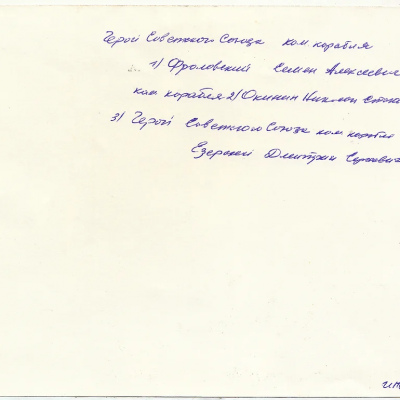 Герой Советского Союза ком корабля
1) Фроловский Семен Алексеевич
ком корабля 2) Окинин Николай
3) Герой Советского Союза ком корабля
Езерский Дмитрий Сергеевич